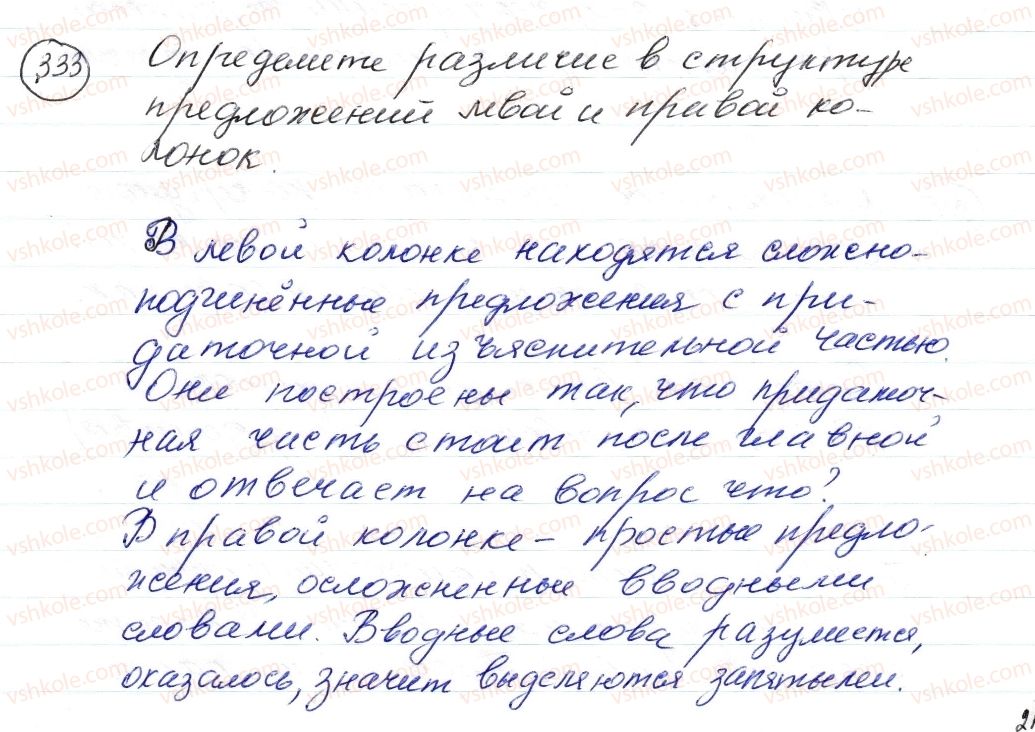 333 Определите различие в структуре
предложений левой и правой ко-
лонок.
В левой колонке находятся сложно-
подчинённые предложения с при-
даточной изъяснительной частью.
Они построены так, что придаточ-
ная часть стоит после главной
и отвечает на вопрос что?
В правой колонке – простые предло-
жения, осложненные вводными
словами. Вводные слова разумеется,
оказалось, значит выделяются запятыми.
21